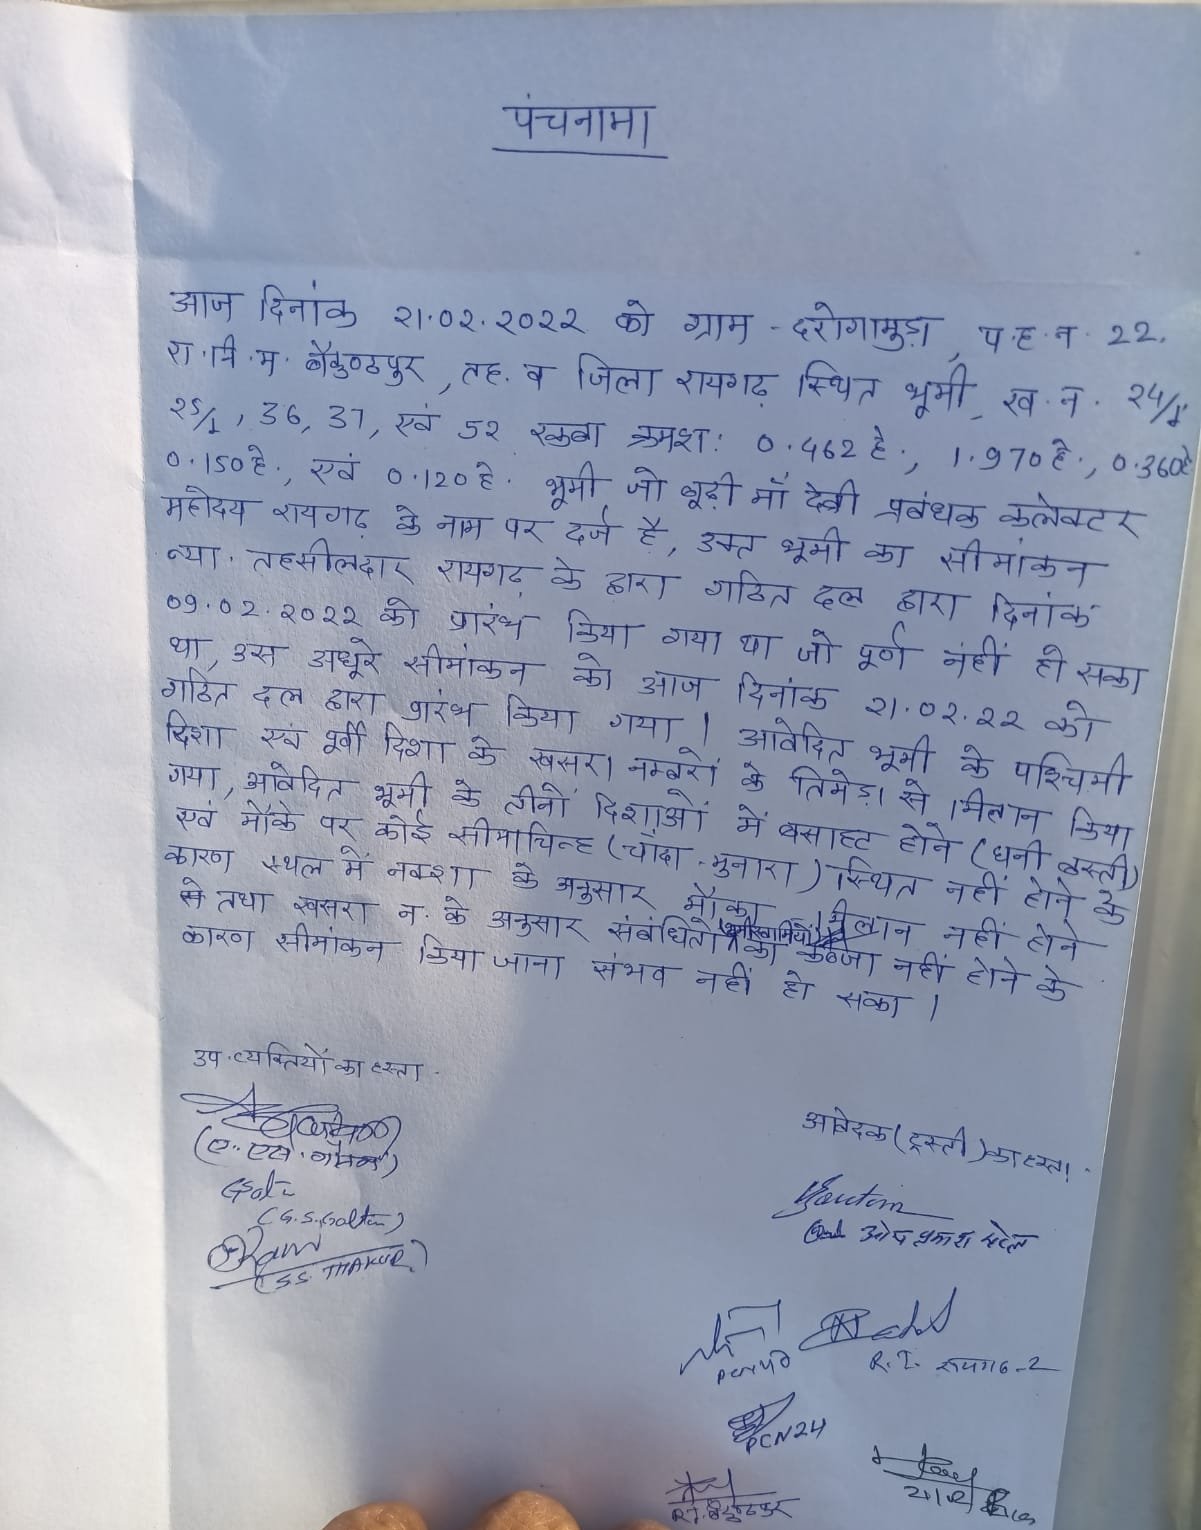 पंचनामा
आज दिनांक २१.०२.२०२२ को ग्राम - दरोगामुड़ा, प.ह.न. 22,
रा.नि.म. बैकुण्ठपुर, तह. व जिला रायगढ़ स्थित भूमी, ख.न. २4/1,
२5/1, 36, 37, एवं 5२ रकबा क्रमश: 0.462 हे., 1.970 हे., 0.360 हे
0.150 हे., एवं 0.120 हे. भूमी जो बूढ़ी माँ देवी प्रबंधक कलेक्टर
महोदय रायगढ़ के नाम पर दर्ज है, उक्त भूमी का सीमांकन
न्या. तहसीलदार रायगढ़ के द्वारा गठित दल द्वारा दिनांक
09.02.२०२२ को प्रारंभ किया गया था जो पूर्ण नंहीं हो सका
था, उस अधूरे सीमांकन को आज दिनांक २1.02.२२ को
गठित दल द्वारा प्रारंभ किया गया। आवेदित भूमी के पश्चिमी
दिशा एवं पूर्वी दिशा के खसरा नम्बरों के तिमेड़ा से मिलान किया
गया, आवेदित भूमी के तीनों दिशाओं में बसाहट होने (घनी बस्ती)
एवं मौंके पर कोई सीमाचिन्ह (चाँदा - मुनारा) स्थित नहीं होने के
कारण स्थल में नक्शा के अनुसार मौका मिलान नहीं होने
से तथा खसरा न. के अनुसार संबंधितों (भूमीस्वामियों) का कब्जा नहीं होने के
कारण सीमांकन किया जाना संभव नहीं हो सका।
उप. व्यक्तियों का हस्ता.
आवेदक (ट्रस्ती) का हस्ता.
(ए. एस. )
Gautam
(G.S. )
ओम प्रकाश पटेल
(S.S. THAKUR)
R.I. रायगढ़-2
PCN 24
R.I. बैकुण्ठपुर